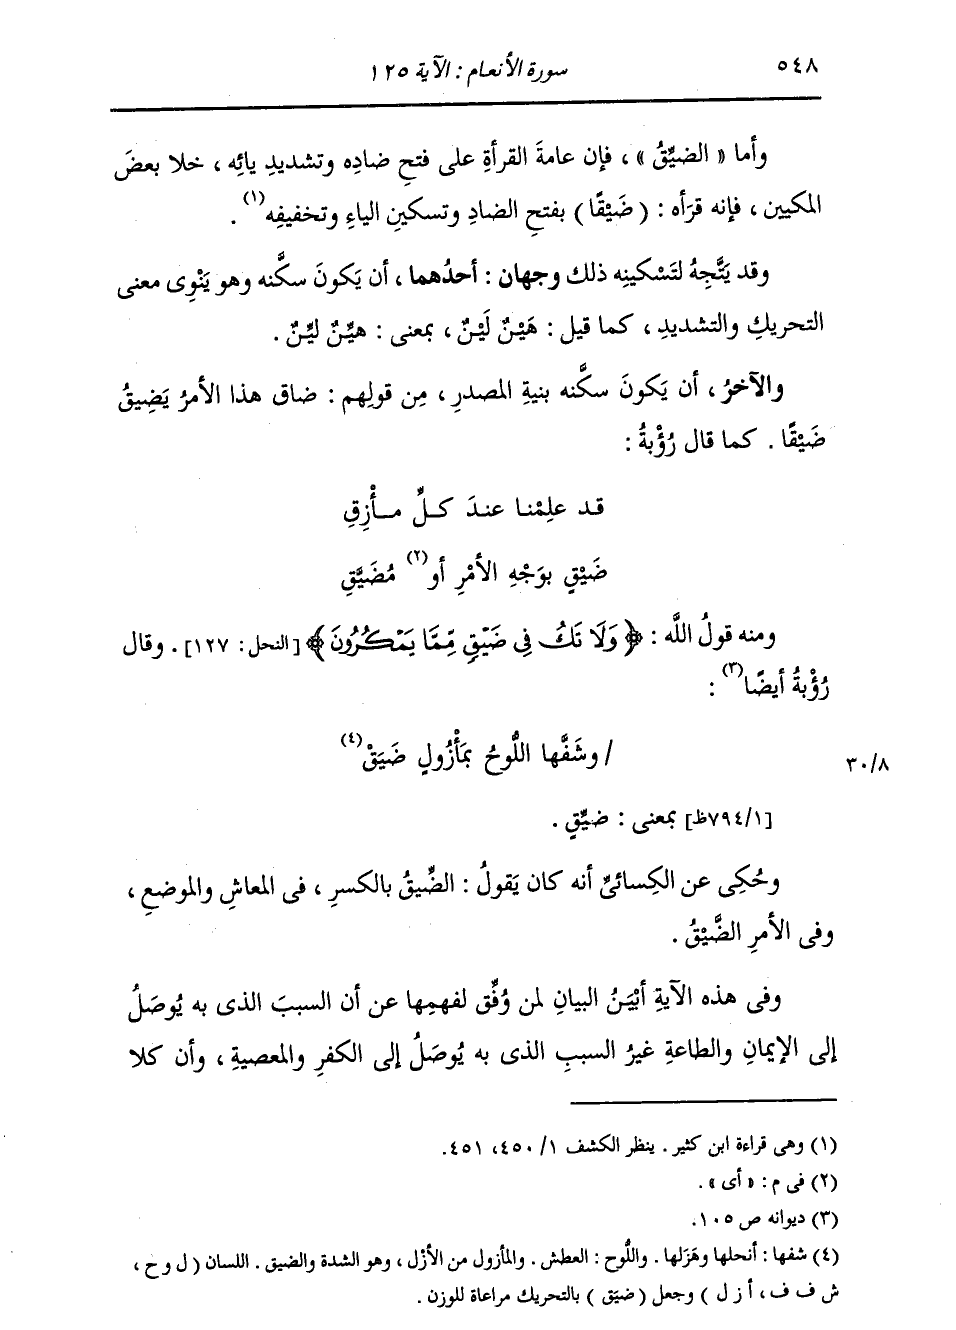 ٥٤٨ سورة الأنعام : الآية ١٢٥
وأما « الضيِّقُ » ، فإن عامةَ القرأةِ على فتحِ ضادِه وتشديدِ يائِه ، خلا بعضَ
المكيين ، فإنه قرَأه : ( ضَيْقًا ) بفتحِ الضادِ وتسكينِ الياءِ وتخفيفِه(١) .
وقد يَتَّجِهُ لتَسْكينِه ذلك وجهان : أحدُهما ، أن يَكونَ سكَّنه وهو يَنْوِى معنى
التحريكِ والتشديدِ ، كما قيل : هَيْنٌ لَيْنٌ ، بمعنى : هيِّنٌ ليِّنٌ .
والآخرُ ، أن يَكونَ سكَّنه بنيةِ المصدرِ ، مِن قولِهم : ضاق هذا الأمرُ يَضِيقُ
ضَيْقًا . كما قال رُؤْبةُ :
قد علِمْنا عندَ كلِّ مأْزِقِ
ضَيْقٍ بوَجْهِ الأمْرِ أو(٢) مُضَيَّقِ
ومنه قولُ اللَّه : ﴿ وَلَا تَكُ فِى ضَيْقٍ مِّمَّا يَمْكُرُونَ ﴾ [النحل: ١٢٧] . وقال
رُؤْبةُ أيضًا(٣) :
/ وشَفَّها اللُّوحُ بمَأْزُولٍ ضَيَقْ(٤)
٣٠/٨
[٧٩٤/١ظ] بمعنى : ضيِّقٍ .
وحُكِى عن الكِسائىِّ أنه كان يَقولُ : الضِّيقُ بالكسرِ ، فى المعاشِ والموضعِ ،
وفى الأمرِ الضَّيْقُ .
وفى هذه الآيةِ أبْيَنُ البيانِ لمن وُفِّق لفهمِها عن أن السببَ الذى به يُوصَلُ
إلى الإيمانِ والطاعةِ غيرُ السببِ الذى به يُوصَلُ إلى الكفرِ والمعصيةِ ، وأن كلا
(١) وهى قراءة ابن كثير . ينظر الكشف ١/ ٤٥٠، ٤٥١.
(٢) فى م : « أى » .
(٣) ديوانه ص ١٠٥.
(٤) شفها : أنحلها وهَزَلها . واللُّوح : العطش . والمأزول من الأزْل ، وهو الشدة والضيق . اللسان ( ل و ح ،
ش ف ف ، أ ز ل ) وجعل ( ضيَق ) بالتحريك مراعاة للوزن .